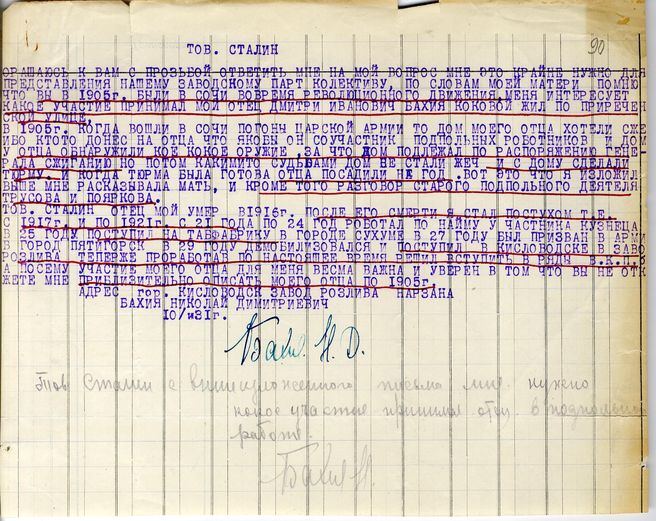 90
ТОВ. СТАЛИН
ОРАЩАЮСЬ К ВАМ С ПРОЗЬБОЙ ОТВЕТИТЬ МНЕ НА МОЙ ВОПРОС МНЕ ЭТО КРАЙНЕ НУЖНО ДЛЯ
ПРЕДСТАВЛЕНИЯ НАШЕМУ ЗАВОДСКОМУ ПАРТ КОЛЕКТИВУ, ПО СЛОВАМ МОЕЙ МАТЕРИ ПОМНЮ
ЧТО ВЫ В 1905г. БЫЛИ В СОЧИ ВОВРЕМЯ РЕВОЛЮЦИОННОГО ДВИЖЕНИЯ МЕНЯ ИНТЕРЕСУЕТ
КАКОЕ УЧАСТИЕ ПРИНИМАЛ МОЙ ОТЕЦ ДМИТРИ ИВАНОВИЧ БАХИЯ КОКОВОЙ ЖИЛ ПО ПРИРЕЧЕН
СКОЙ УЛИЦЕ,
В 1905г. КОГДА ВОШЛИ В СОЧИ ПОГОНЫ ЦАРСКОЙ АРМИИ ТО ДОМ МОЕГО ОТЦА ХОТЕЛИ СЖЕ
ИБО КТОТО ДОНЕС НА ОТЦА ЧТО ЯКОБЫ ОН СОУЧАСТНИК ПОДПОЛЬНЫХ РОБОТНИКОВ И ДОМ
ОТЦА ОБНАРУЖИЛИ КОЕ КОКОЕ ОРУЖИЕ, ЗА ЧТО ДОМ ПОДЛЕЖАЛ ПО РАСПОРЯЖЕНИЮ ГЕНЕР
РАЛА СЖИГАНИЮ НО ПОТОМ КАКИМИТО СУДЬБАМИ ДОМ НЕ СТАЛИ ЖЕЧ И С ДОМУ СДЕЛАЛИ
ТЮРМУ. И КОГДА ТЮРМА БЫЛА ГОТОВА ОТЦА ПОСАДИЛИ НЕ ГОД. ВОТ ЭТО ЧТО Я ИЗЛОЖИЛ
ВЫШЕ МНЕ РАСКАЗЫВАЛА МАТЬ, И КРОМЕ ТОГО РАЗГОВОР СТАРОГО ПОДПОЛЬНОГО ДЕЯТЕЛЯ
ТРУСОВА И ПОЯРКОВА.
ТОВ. СТАЛИН ОТЕЦ МОЙ УМЕР В 1916г. ПОСЛЕ ЕГО СМЕРТИ Я СТАЛ ПОСТУХОМ Т.Е.
С 1917г. И ПО 1921г. С 21 ГОДА ПО 24 ГОД РОБОТАЛ ПО НАЙМУ У ЧАСТНИКА КУЗНЕЦА
25 ГОДУ ПОСТУПИЛ НА ТАБФАБРИКУ ГОРОДЕ СУХУМЕ В 27 ГОДУ БЫЛ ПРИЗВАН В АРМИ
В ГОРОД ПЯТИГОРСК В 29 ГОДУ ДЕМОБИЛИЗОВАЛСЯ И ПОСТУПИЛ В КИСЛОВОДСКЕ В ЗАВО
РОЗЛИВА ТЕПЕРЖЕ ПРОРАБОТАВ ПО НАСТОЯЩЕЕ ВРЕМЯ РЕШИЛ ВСТУПИТЬ В РЯДЫ В.К.П.В
А ПОСЕМУ УЧАСТИЕ МОЕГО ОТЦА ДЛЯ МЕНЯ ВЕСМА ВАЖНА И УВЕРЕН В ТОМ ЧТО ВЫ НЕ ОТК
ЖЕТЕ МНЕ ПРИБЛИЗИТЕЛЬНО ОПИСАТЬ МОЕГО ОТЦА ПО 1905г.
АДРЕС гор. КИСЛОВОДСК ЗАВОД РОЗЛИВА НАРЗАНА
БАХИЯ НИКОЛАЙ ДИМИТРИЕВИЧ
10/и31г.
Бахия Н. Д.
Тов Сталин с вышеизложенного письма мне нужно
какое участие принимал отец в подпольной
работе.
Бахия Н.